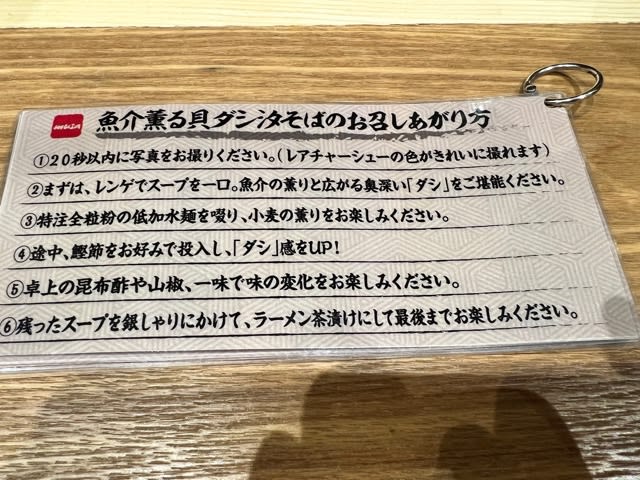 魚介薫る貝ダシ汐そばのお召しあがり方
①20秒以内に写真をお撮りください。(レアチャーシューの色がきれいに撮れます)
②まずは、レンゲでスープを一口。魚介の薫りと広がる奥深い「ダシ」をご堪能ください。
③特注全粒粉の低加水麺を啜り、小麦の薫りをお楽しみください。
④途中、鰹節をお好みで投入し、「ダシ」感をUP!
⑤卓上の昆布酢や山椒、一味で味の変化をお楽しみください。
⑥残ったスープを銀しゃりにかけて、ラーメン茶漬けにして最後までお楽しみください。